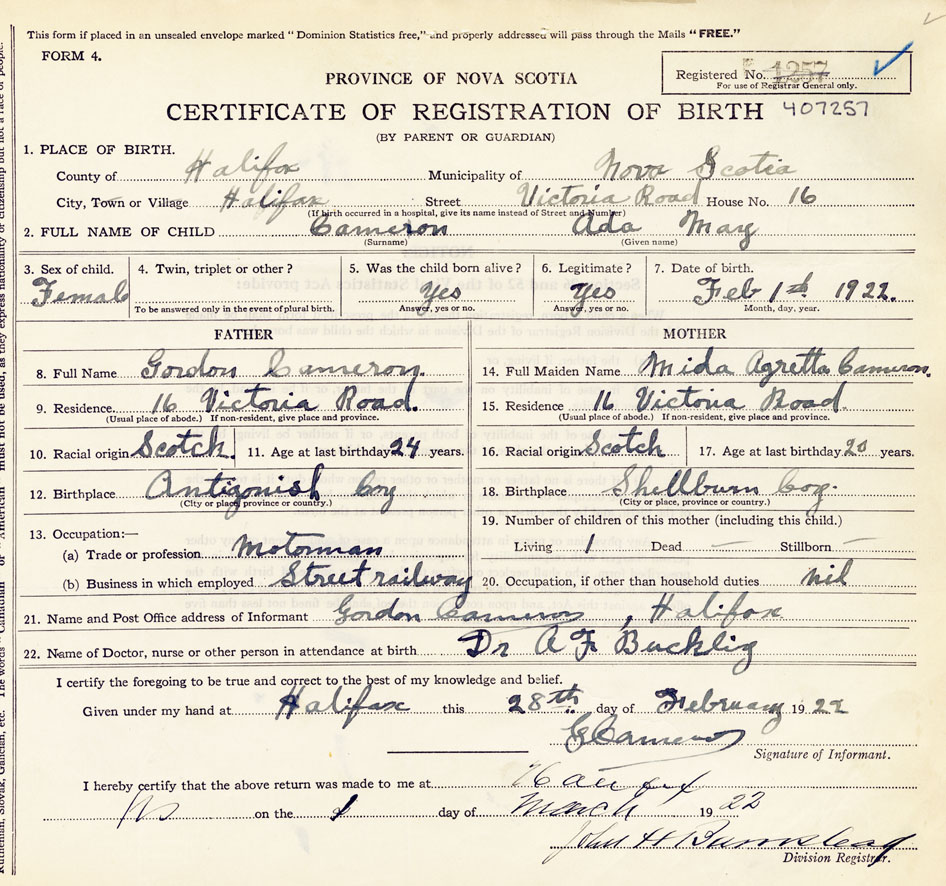 This form if placed in an unsealed envelope marked "Dominion Statistics free," and properly addressed will pass through the Mails "FREE."
FORM 4.
Registered No. 1257
For use of Registrar General only.
PROVINCE OF NOVA SCOTIA
CERTIFICATE OF REGISTRATION OF BIRTH 407257
(BY PARENT OR GUARDIAN)
1. PLACE OF BIRTH.
County of Halifax Municipality of Nova Scotia
City, Town or Village Halifax Street Victoria Road House No. 16
(If birth occurred in a hospital, give its name instead of Street and Number)
2. FULL NAME OF CHILD Cameron Ada Mary
(Surname) (Given name)
3. Sex of child. 4. Twin, triplet or other? 5. Was the child born alive? 6. Legitimate? 7. Date of birth.
Female Yes Yes Feb 1st 1922.
To be answered only in the event of plural birth. Answer, yes or no. Answer, yes or no. Month, day, year.
FATHER MOTHER
8. Full Name Gordon Cameron. 14. Full Maiden Name Mida Agretta Cameron.
9. Residence 16 Victoria Road. 15. Residence 16 Victoria Road.
(Usual place of abode.) If non-resident, give place and province. (Usual place of abode.) If non-resident, give place and province.
10. Racial origin Scotch. 11. Age at last birthday 24 years. 16. Racial origin Scotch 17. Age at last birthday 20 years.
12. Birthplace Antigonish Coy 18. Birthplace Shellburn Coy.
(City or place, province or country.) (City or place, province or country.)
13. Occupation:— 19. Number of children of this mother (including this child.)
(a) Trade or profession Motorman Living 1 Dead — Stillborn —
(b) Business in which employed Street railway 20. Occupation, if other than household duties nil
21. Name and Post Office address of Informant Gordon Cameron, Halifax
22. Name of Doctor, nurse or other person in attendance at birth Dr A F Bucklig
I certify the foregoing to be true and correct to the best of my knowledge and belief.
Given under my hand at Halifax this 28th day of February 1922
G Cameron
Signature of Informant.
I hereby certify that the above return was made to me at Halifax
NS on the 1 day of March 1922
John H Barnstead
Division Registrar.